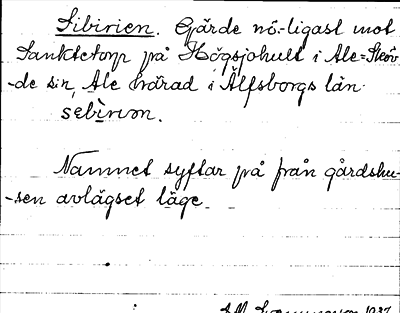 Sibirien. Gärde nö-ligast mot
Sanktetorp på Högsjohult i Ale=Sköv
-de sn, Ale härad i Älfsborgs län.
sebìrıon.
Namnet syftar på från gårdshu-
-sen avlägset läge.
1937